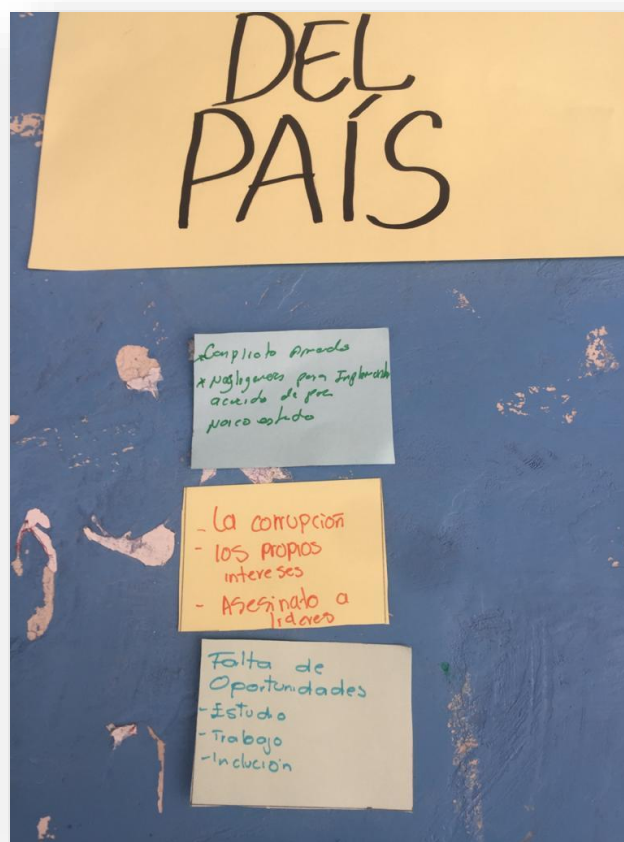 DEL
PAÍS
x Conflicto Armado
x Negligencia para Implementar
acuerdo de paz
Narco estado
- La corrupción
- los propios
intereses
- Asesinato a
lideres
Falta de
Oportunidades
- Estudio
- Trabajo
- Inclución